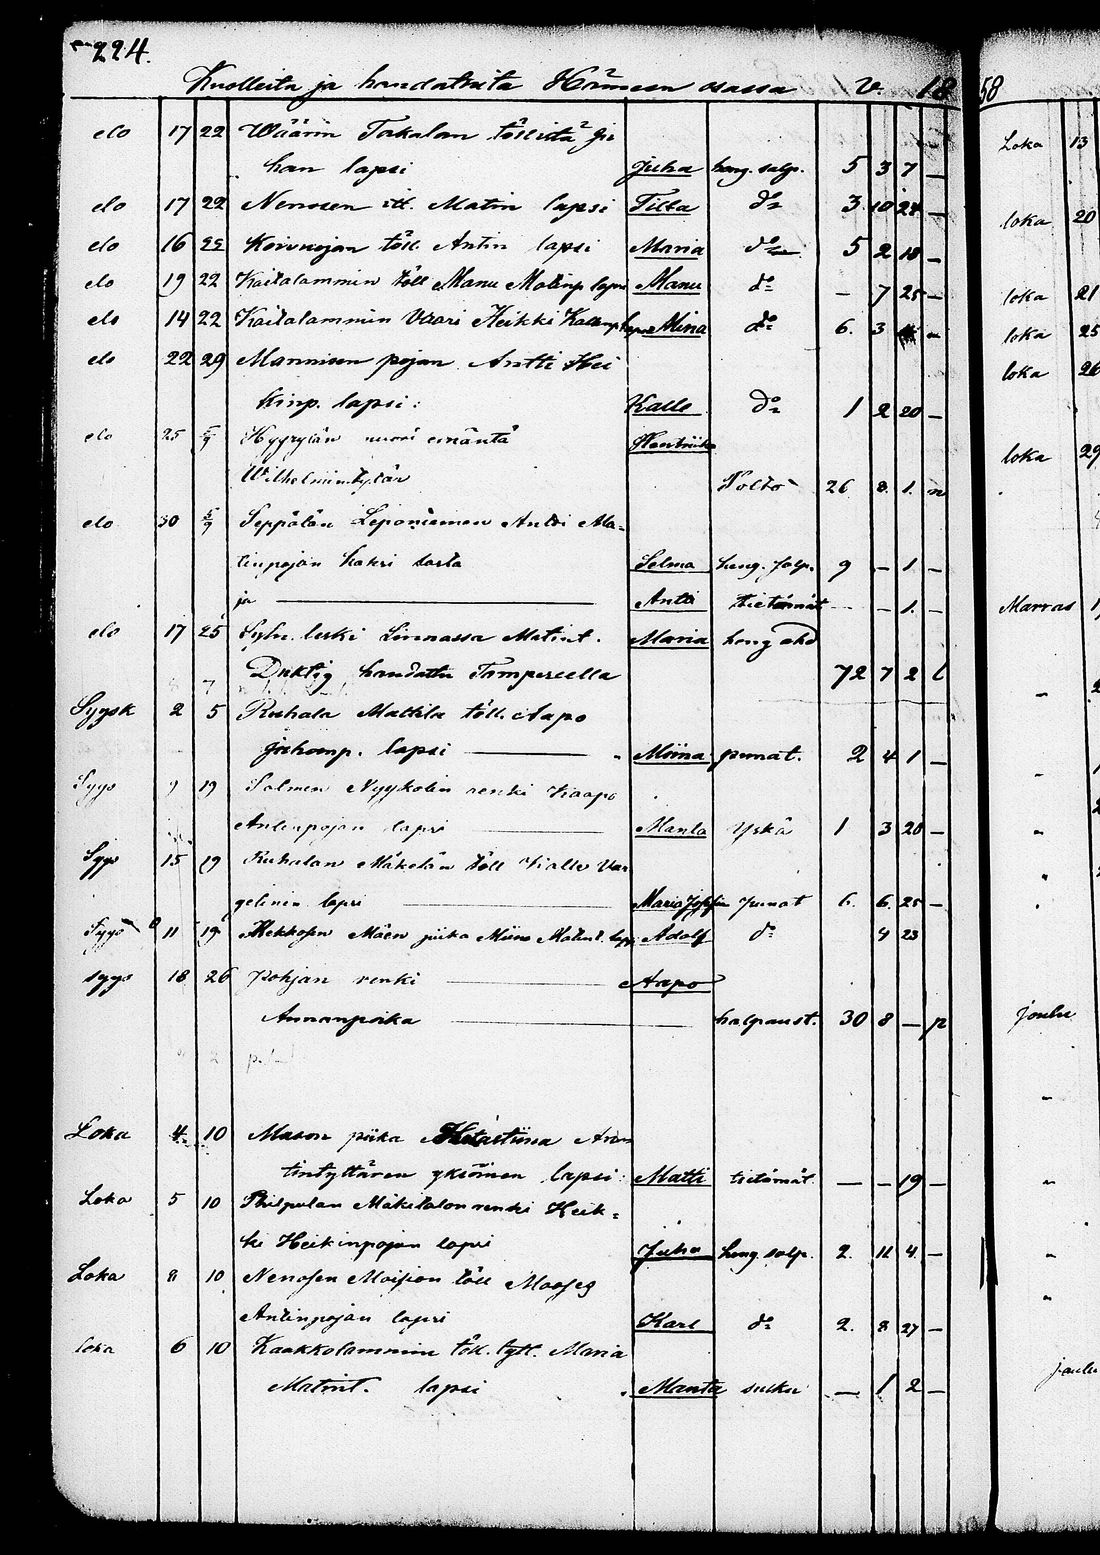 224.
Kuolleita ja haudatuita Hämeen osassa v. 18
elo 17 22 Väärin Takalan töllistä Ju
han lapsi Juha heng. salp. 5 3 7 –
elo 17 22 Nenosen itl. Matin lapsi Tilta d:o 3 10 24 –
elo 16 22 Koivuojan töll Antin lapsi Maria d:o 5 2 10 –
elo 19 22 Kaitalammin töll Manu Matinp lapsi Manu d:o – 7 25 –
elo 14 22 Kaitalammin Vaari Heikki Kallenp lapsi Miina d:o 6. 3 –
elo 22 29 Mannisen pojan Antti Hei
kinp. lapsi: Kalle d:o 1 2 20 –
elo 25 5/9 Hyyrylän nuori emäntä
Wilhelmintytär Polto 26 8. 1. n
elo 30 5/9 Seppälän Leponiemen Antti Ma-
tinpojan kaksi lasta Selma heng. salp. 9 – 1. –
ja Antti tietämät – – 1. –
elo 17 25 leski Linnassa Matint. Maria heng ahd
Duktig haudattu Tampereella 72 7 2 l
Syysk 2 5 Ruhala Mattila töll. Aapo
Juhonp. lapsi Miina punat. 2 4 1 –
Syys 9 19 Salmen Nyykolin renki Kaapo
Antinpojan lapsi Manta Yskä 1 3 20 –
Syys 15 19 Ruhalan Mäkelän töll Kalle Van
gelinin lapsi Maria Josefin Punat 6. 6. 25 –
Syys 11 19 Kekkosen Mäen piika Miina Matint. laps. Adolf d:o 4 23
syys 18 26 Pohjan renki Aapo
Annanpoika halpaust. 30 8 – p
Loka 4 10 Mason piika An
tintyttären yksöinen lapsi: Matti tietämät. – – 19 –
Loka 5 10 Philpulan Mäkitalon renki Heik-
ki Heikinpojan lapsi Juha heng. salp. 2. 11 4. –
Loka 8 10 Nenosen Moision töll Mooses
Antinpojan lapsi Karl d:o 2. 8 27 –
loka 6 10 Kaakkolammin töll. tytt. Maria
Matint. lapsi Manta suiku – 1 2 –
58
Loka 13
loka 20
loka 21
loka 25
loka 26
loka 29
Marras
joulu
joulu